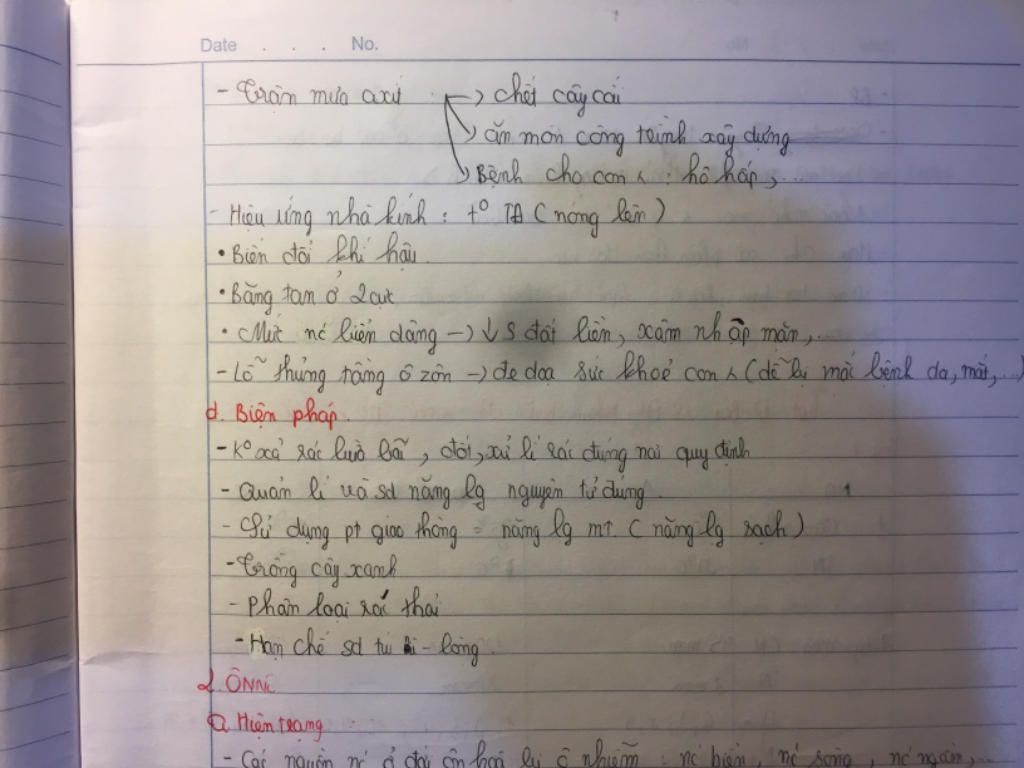 Date . . . No.
- Trận mưa axit → chết cây cối
→ ăn mòn công trình xây dựng
→ Bệnh cho con : hô hấp, ...
- Hiệu ứng nhà kính : t° TĐ (nóng lên)
• Biến đổi khí hậu.
• Băng tan ở 2 cực
• Mực nc biển dâng → ↓ S đất liền, xâm nhập mặn, ...
- Lỗ thủng tầng ô zôn → đe doạ sức khoẻ con (dễ bị mắc bệnh da, mắt, ...)
d. Biện pháp.
- K° xả rác bừa bãi, đốt, xử lí rác đúng nơi quy định
- Quản lí và sd năng lg nguyên tử đúng.
- Sử dụng pt giao thông = năng lg mt. (năng lg sạch)
- Trồng cây xanh
- Phân loại rác thải
- Hạn chế sd túi ni-lông.
2. ÔNNC
a. Hiện trạng :
- Các nguồn nc ở đới ôn hoà bị ô nhiễm : nc biển, nc sông, nc ngầm, ...